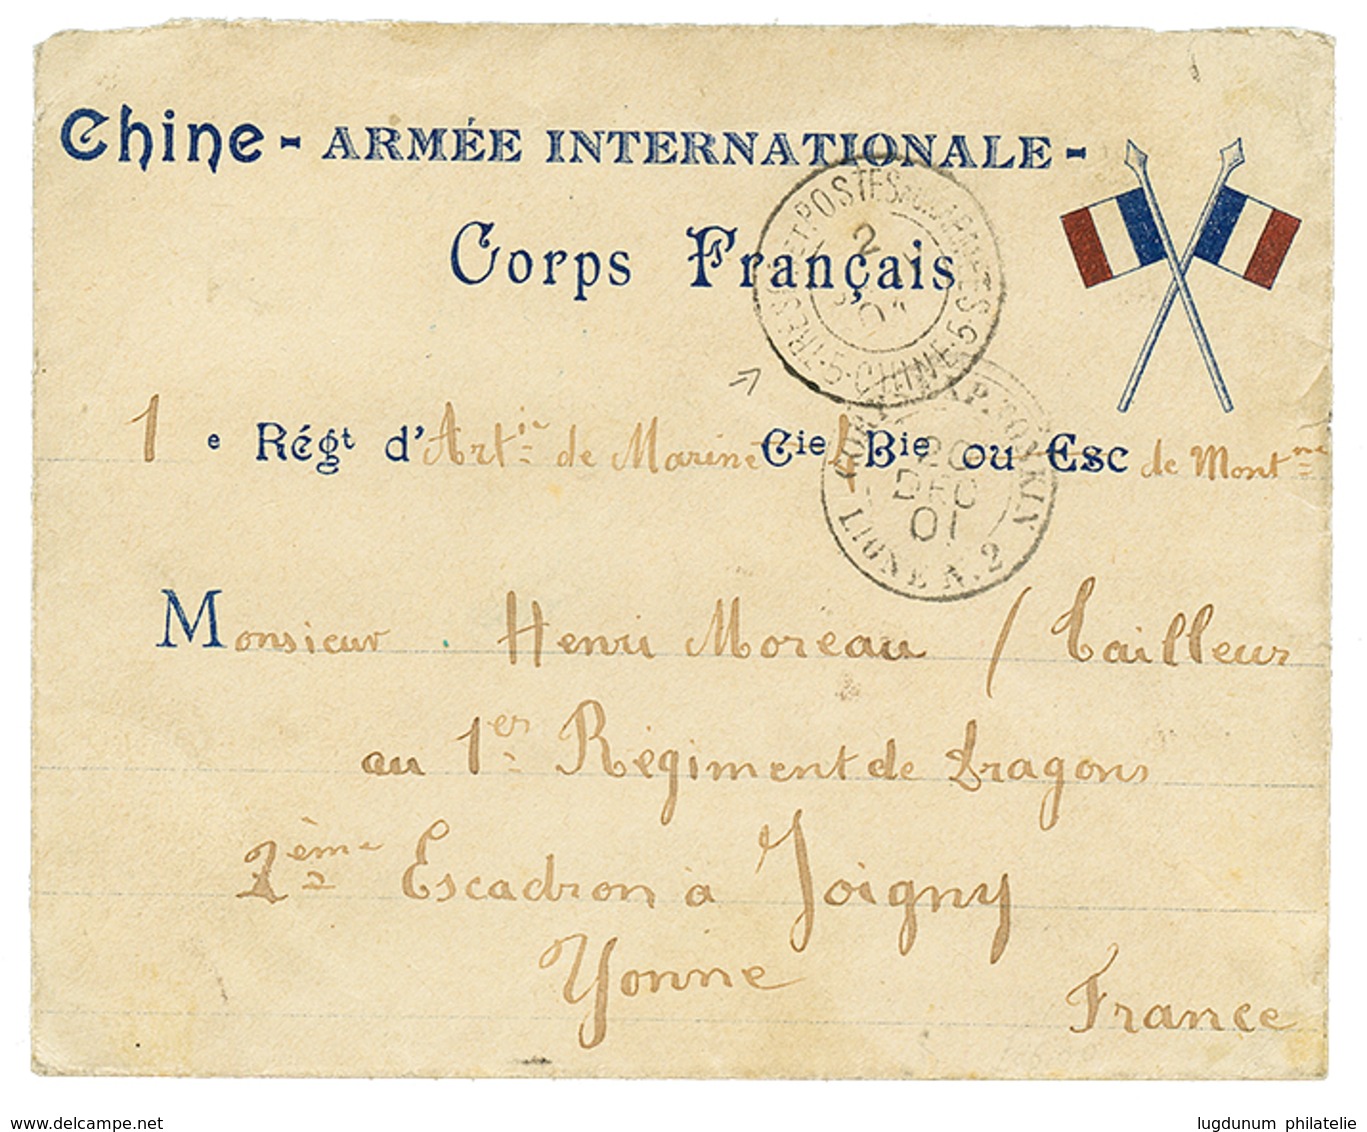 Chine - ARMÉE INTERNATIONALE -
Corps Français
TRESOR ET POSTES AUX ARMEES
2
01
5 CHINE 5
1 e Régt d'Artie de Marine Cie Bie ou Esc de Montne
CORR. D. AP. TONKIN
20
DEC
01
LIGNE N. 2
Monsieur Henri Moreau / Tailleur
au 1er Régiment de Dragons
2ème Escadron à Joigny
Yonne
France
www.delcampe.net
lugdunum philatelie